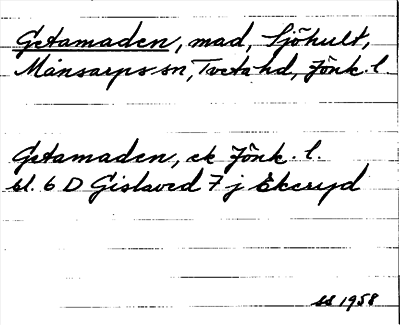 Getamaden, mad, Sjöhult,
Månsarps sn, Tveta hd, Jönk. l.
Getamaden, ek Jönk. l.
bl. 6 D Gislaved 7 j Ekeryd
ss 1958